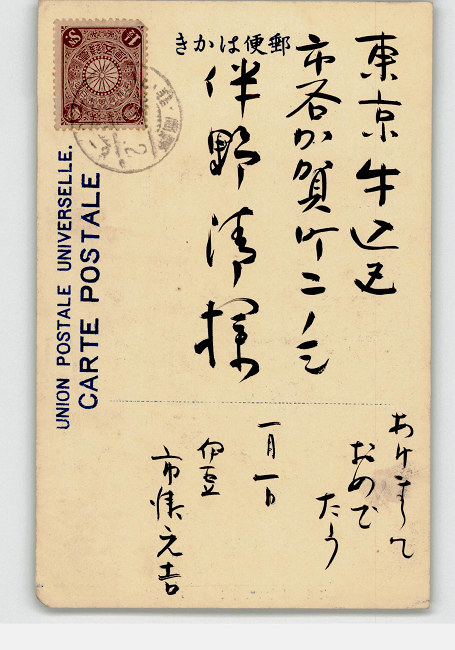 郵便はかき
東京牛込区
市谷加賀町二ノ三
伴野清様
あけまして
おめで
たう
一月一日
伊豆
市川元吉
UNION POSTALE UNIVERSELLE.
CARTE POSTALE